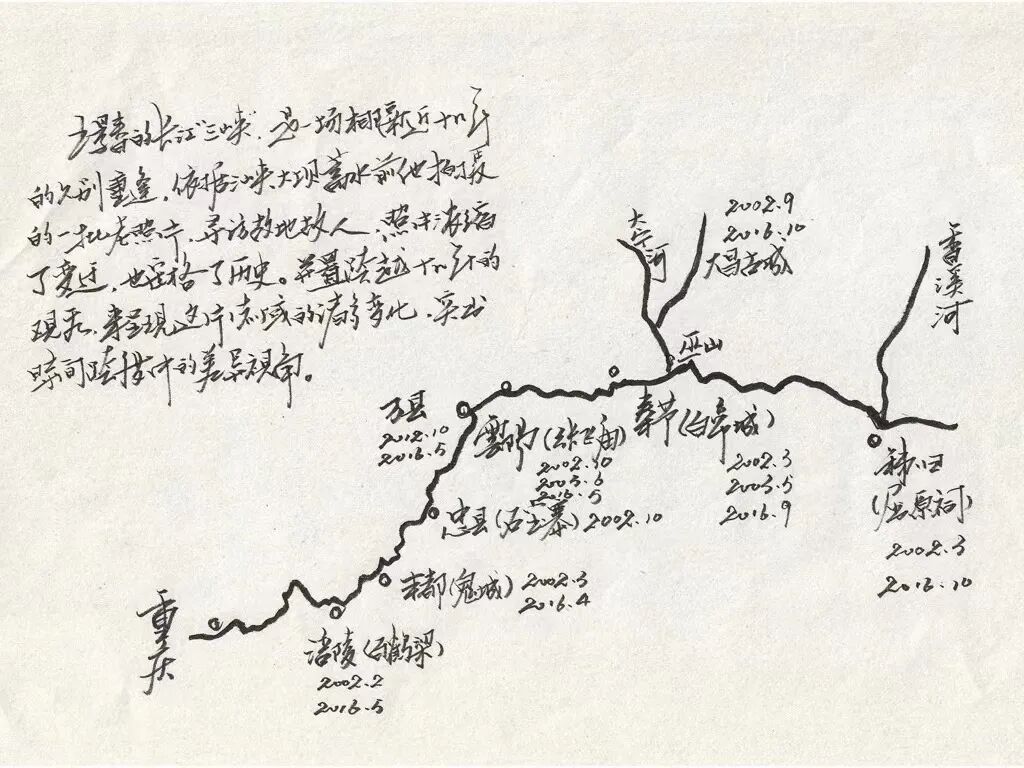 的长江“三峡”,是一场相隔近十几年
的久别重逢,依据三峡大坝蓄水前他拍摄
的一批老照片,寻访故地故人,照片浓缩
了变迁,也定格了历史。并置跨越十几年的
现,来呈现这片流域的诸多变化,突出
时间跨度中的差异视角。
大宁河
2002.9
2016.10
大昌古城
香溪河
巫山
万县
2012.10
2016.5
雲阳(张飞庙)
2002.10
2003.6
2016.5
奉节(白帝城)
2002.3
2003.5
2016.9
秭归
(屈原祠)
2002.3
2016.10
忠县(石宝寨)2002.10
丰都(鬼城)
2002.3
2016.4
重庆
涪陵(白鹤梁)
2002.2
2016.5